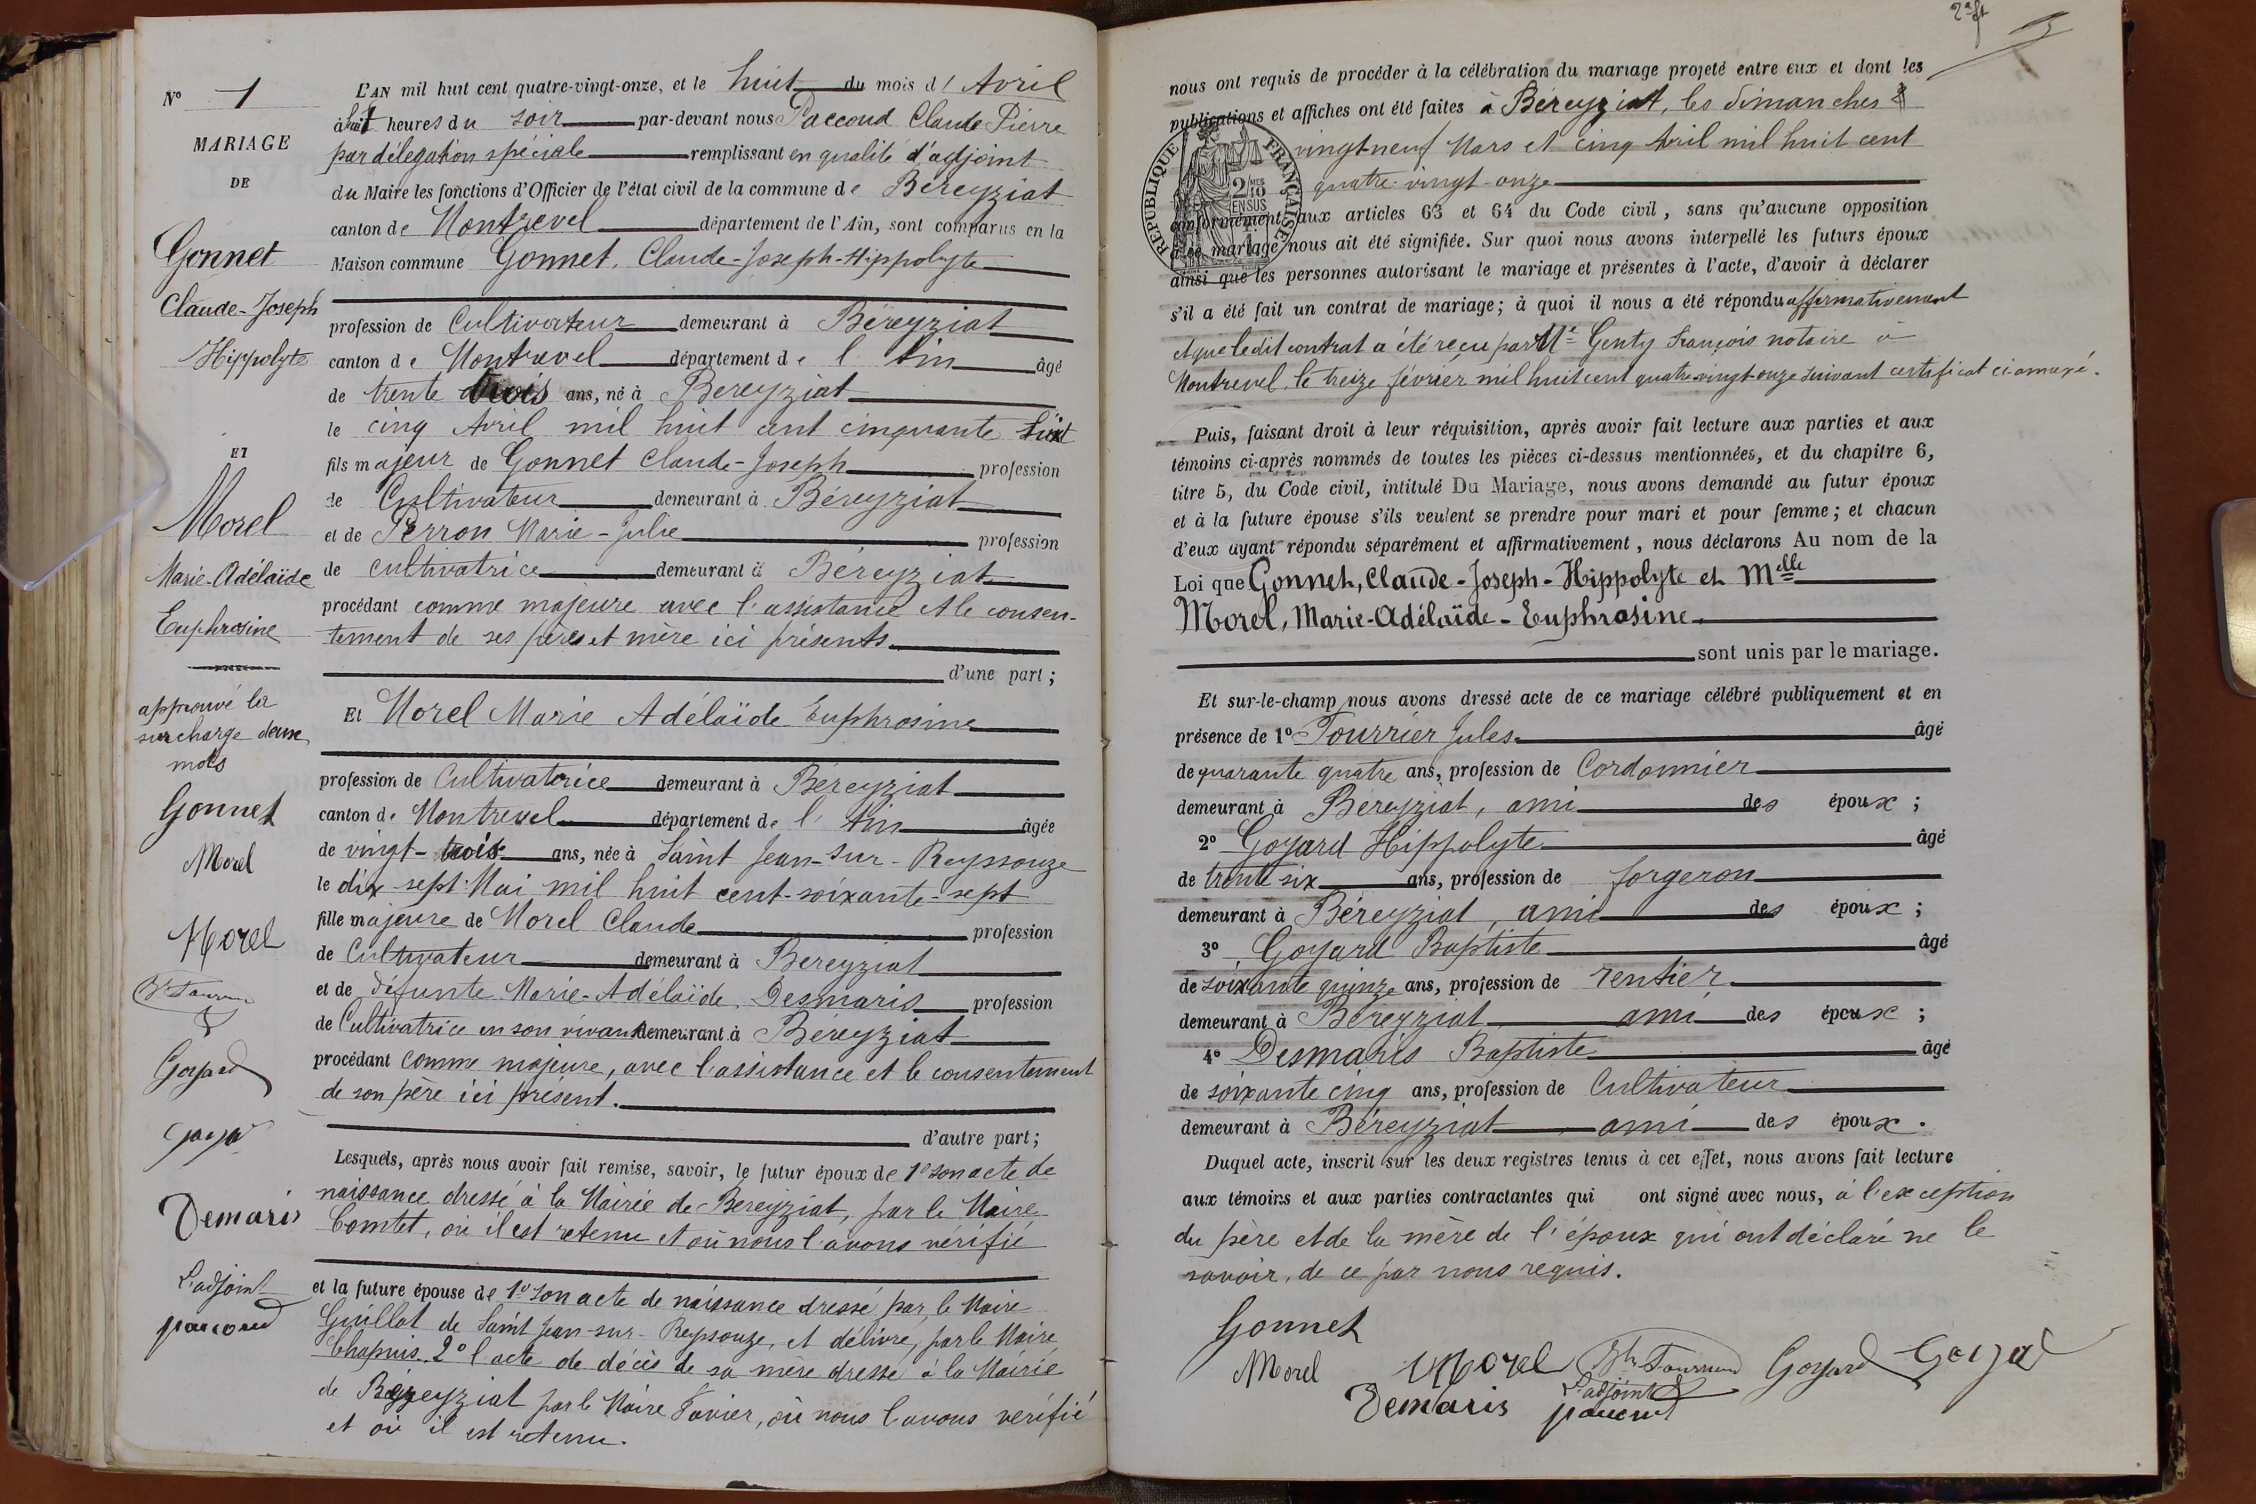 Nº 1
MARIAGE
DE
Gonnet
Claude-Joseph
Hippolyte
ET
Morel
Marie-Adélaïde
Euphrosine
approuvé la
surcharge deux
mots
Gonnet
Morel
Morel
Goyard
Demaris
L'adjoint
paccoud
L'AN mil huit cent quatre-vingt-onze, et le huit du mois d' Avril
à huit heures du soir par-devant nous Paccoud Claude Pierre
par délégation spéciale remplissant en qualité d'adjoint
du Maire les fonctions d'Officier de l'état civil de la commune de Béreyziat
canton de Montrevel département de l'Ain, sont comparus en la
Maison commune Gonnet, Claude-Joseph-Hippolyte
profession de Cultivateur demeurant à Béreyziat
canton de Montrevel département de l' Ain âgé
de trente trois ans, né à Béreyziat
le cinq Avril mil huit cent cinquante huit
fils majeur de Gonnet Claude-Joseph profession
de Cultivateur demeurant à Béreyziat
et de Perron Marie-Julie profession
de cultivatrice demeurant à Béreyziat
procédant comme majeure avec l'assistance et le consen-
tement de ses père et mère ici présents
d'une part;
Et Morel Marie Adélaïde Euphrosine
profession de Cultivatrice demeurant à Béreyziat
canton de Montrevel département de l' Ain âgée
de vingt-trois ans, née à Saint Jean-sur-Reyssouze
le dix-sept Mai mil huit cent-soixante-sept
fille majeure de Morel Claude profession
de Cultivateur demeurant à Béreyziat
et de défunte Marie-Adélaïde Desmaris profession
de Cultivatrice en son vivant demeurant à Béreyziat
procédant comme majeure, avec l'assistance et le consentement
de son père ici présent.
d'autre part;
Lesquels, après nous avoir fait remise, savoir, le futur époux de 1º son acte de
naissance dressé à la Mairie de Béreyziat, par le Maire
Comtet, où il est retenu et où nous l'avons vérifié
et la future épouse de 1º son acte de naissance dressé par le Maire
Guillot de Saint Jean-sur-Reyssouze, et délivré par le Maire
Chapuis. 2º l'acte de décès de sa mère dressé à la Mairie
de Béreyziat par le Maire Favier, où nous l'avons vérifié
et où il est retenu.
nous ont requis de procéder à la célébration du mariage projeté entre eux et dont les
publications et affiches ont été faites à Béreyziat, les dimanches
vingt-neuf Mars et cinq Avril mil huit cent
quatre-vingt-onze
RÉPUBLIQUE FRANÇAISE
2/10 MES
EN SUS
conformément aux articles 63 et 64 du Code civil, sans qu'aucune opposition
à ce mariage nous ait été signifiée. Sur quoi nous avons interpellé les futurs époux
ainsi que les personnes autorisant le mariage et présentes à l'acte, d'avoir à déclarer
s'il a été fait un contrat de mariage; à quoi il nous a été répondu affirmativement
et que ledit contrat a été reçu par Me Genty François notaire à
Montrevel, le treize février mil huit cent quatre vingt onze suivant certificat ci-annexé.
Puis, faisant droit à leur réquisition, après avoir fait lecture aux parties et aux
témoins ci-après nommés de toutes les pièces ci-dessus mentionnées, et du chapitre 6,
titre 5, du Code civil, intitulé Du Mariage, nous avons demandé au futur époux
et à la future épouse s'ils veulent se prendre pour mari et pour femme; et chacun
d'eux ayant répondu séparément et affirmativement, nous déclarons Au nom de la
Loi que Gonnet, Claude-Joseph-Hippolyte et Melle
Morel, Marie-Adélaïde-Euphrosine
sont unis par le mariage.
Et sur-le-champ nous avons dressé acte de ce mariage célébré publiquement et en
présence de 1º Fourrier Jules âgé
de quarante quatre ans, profession de Cordonnier
demeurant à Béreyziat, ami des époux;
2º Goyard Hippolyte âgé
de trente six ans, profession de forgeron
demeurant à Béreyziat, ami des époux;
3º Goyard Baptiste âgé
de soixante quinze ans, profession de rentier
demeurant à Béreyziat ami des époux;
4º Desmaris Baptiste âgé
de soixante cinq ans, profession de Cultivateur
demeurant à Béreyziat ami des époux.
Duquel acte, inscrit sur les deux registres tenus à cet effet, nous avons fait lecture
aux témoins et aux parties contractantes qui ont signé avec nous, à l'exception
du père et de la mère de l'époux qui ont déclaré ne le
savoir, de ce par nous requis.
Gonnet
Morel Morel Goyard Goyard
Demaris L'adjoint
paccoud